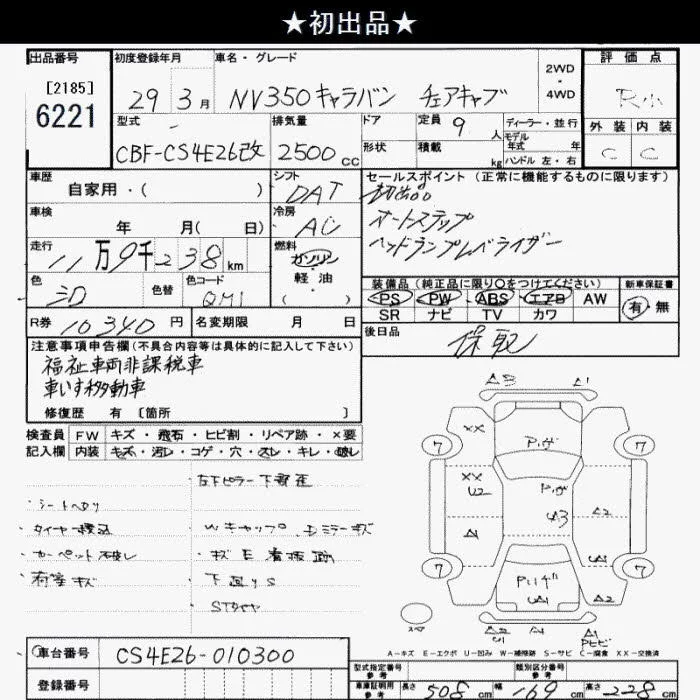 ★初出品★
出品番号
[2185]
6221
初度登録年月
29年3月
車名・グレード
NV350キャラバン チェアキャブ
2WD
・
4WD
評価点
外装 内装
C C
型式
CBF-CS4E26改
排気量
2500cc
ドア
形状
定員 9人
積載 kg
ディーラー・並行
モデル年式 年
ハンドル 左・右
車歴
自家用・( )
シフト
DAT
セールスポイント(正常に機能するものに限ります)
初出品
オートステップ
ヘッドランプレベライザー
車検
年 月( 日)
冷房
AC
走行
11万9千238km
燃料
ガソリン
軽油
( )
色
色替
色コード
QM1
装備品(純正品に限り○をつけてください)
PS PW ABS エアB AW
SR ナビ TV カワ
新車保証書
有・無
R券 10340円
名変期限 月 日
後日品
保取
注意事項申告欄(不具合内容等は具体的に記入して下さい)
福祉車両非課税車
車いす移動車
修復歴 有 [箇所 ]
検査員記入欄
FW キズ・飛石・ヒビ割・リペア跡・×要
内装 キズ・汚レ・コゲ・穴・スレ・キレ・破レ
左下ピラー下部歪
・シートヘタリ
・タイヤ積込
・Wキャップ、Dミラーキズ
・カーペット破レ
・キズE看板跡
・荷室キズ
・下廻りS
・STタイヤ
A3 A1
XX
7 7
XX
U2
A1
A2
U3
UA1
7 7
UA1
A2
A2
U1
A1
A-キズ E-エクボ U-凹み W-補修跡 S-サビ C-腐食 XX-交換済
車台番号
CS4E26-010300
登録番号
型式指定番号
参考
類別区分番号
参考
車庫証明用
参考
長さ 508cm 幅 169cm 高さ 228cm